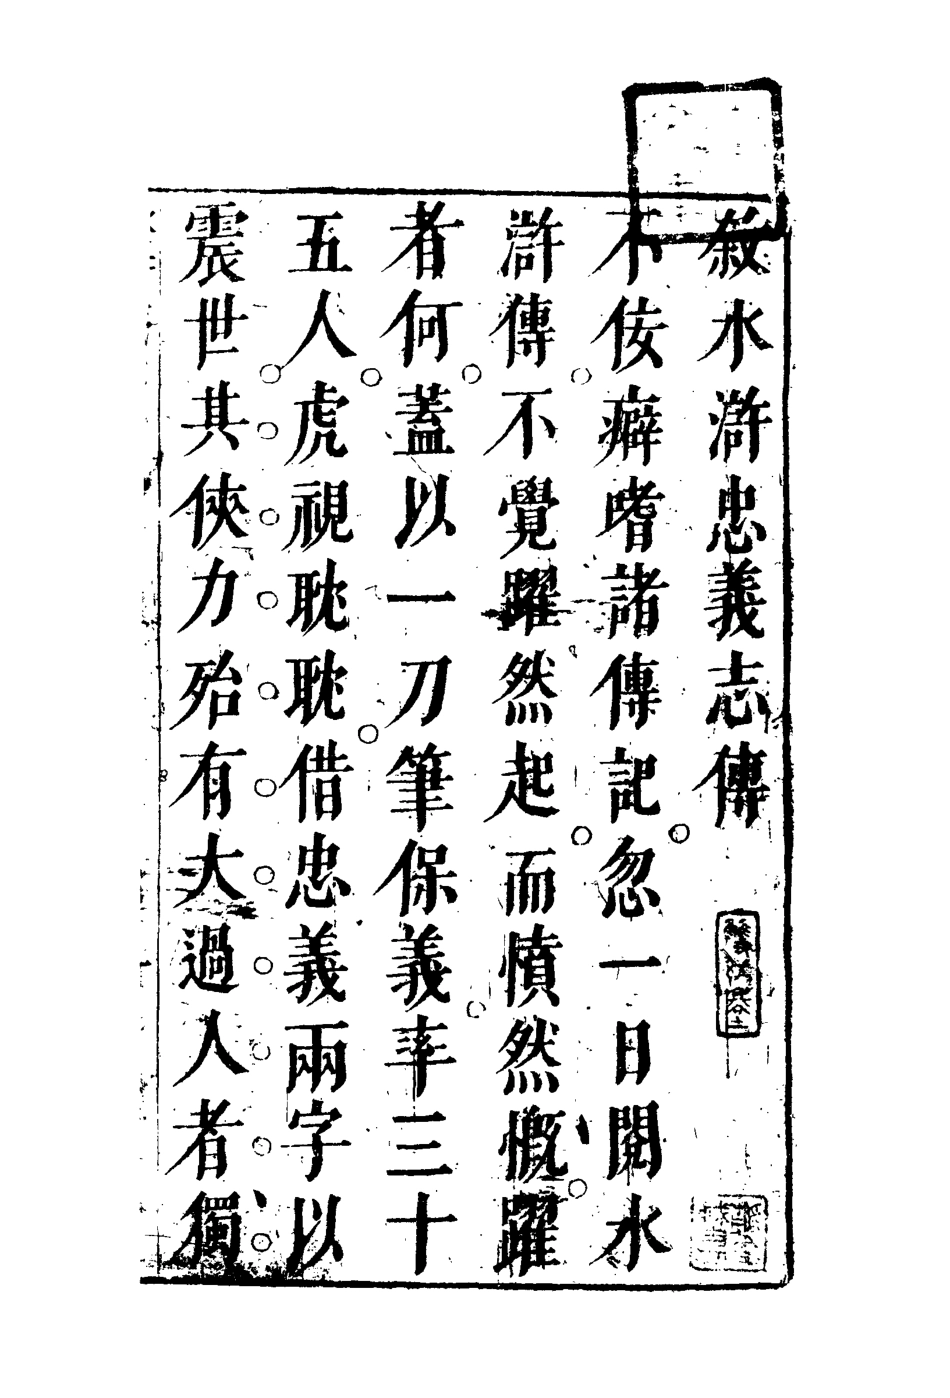 敘水滸忠義志傳
不佞癖嗜諸傳記忽一日閱水
滸傳不覺躍然起而憤然慨躍
者何蓋以一刀筆保義率三十
五人虎視耽耽借忠義兩字以
震世其俠力殆有大過人者獨